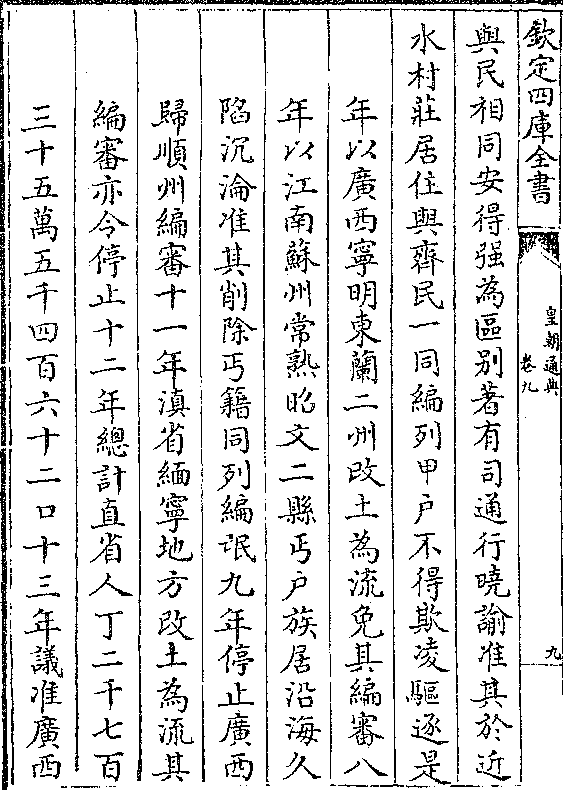 欽定四庫全書
皇朝通典
卷九
九
與民相同安得强為區别著有司通行曉諭准其於近
水村莊居住與齊民一同編列甲户不得欺凌驅逐是
年以廣西寧明東蘭二州改土為流免其編審八
年以江南蘇州常熟昭文二縣丐户族居沿海久
陷沉淪准其削除丐籍同列編氓九年停止廣西
歸順州編審十一年滇省緬寧地方改土為流其
編審亦令停止十二年總計直省人丁二千七百
三十五萬五千四百六十二口十三年議准廣西